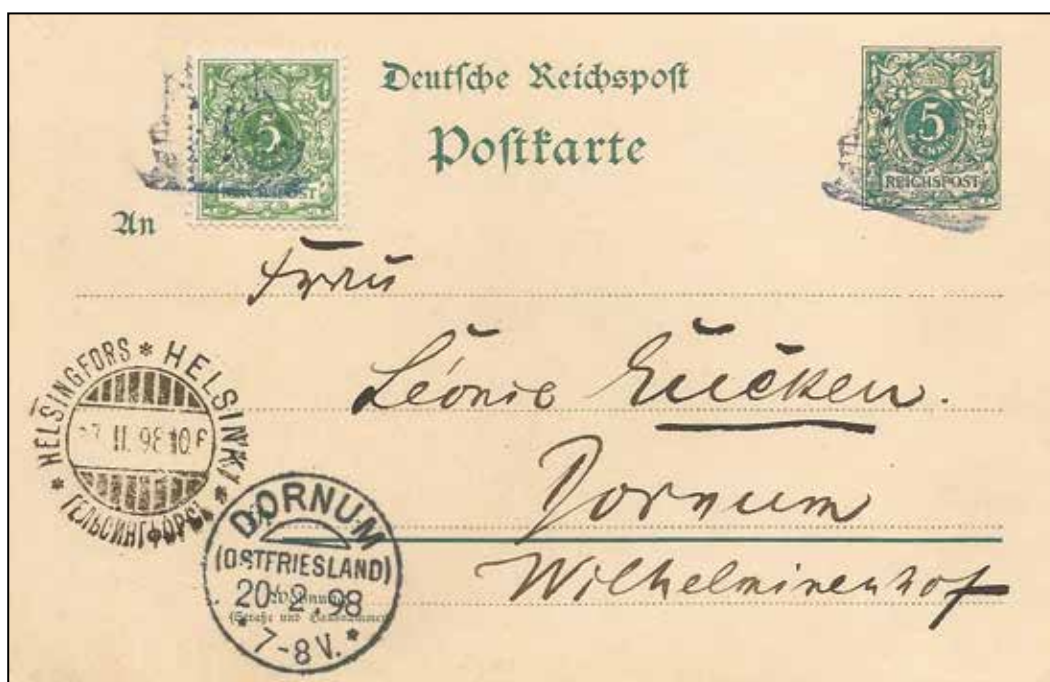 Deutsche Reichspost
Postkarte
5
REICHSPOST
5
PFENNIG
REICHSPOST
An
Frau
Léonie Eucken.
Dornum
Wilhelminenhof
HELSINGFORS * HELSINKI * ГЕЛЬСИНГФОРСЪ *
II 98 10
DORNUM
(OSTFRIESLAND)
20 2. 98
* 7-8 V. *
Wohnung
(Straße und Hausnummer)